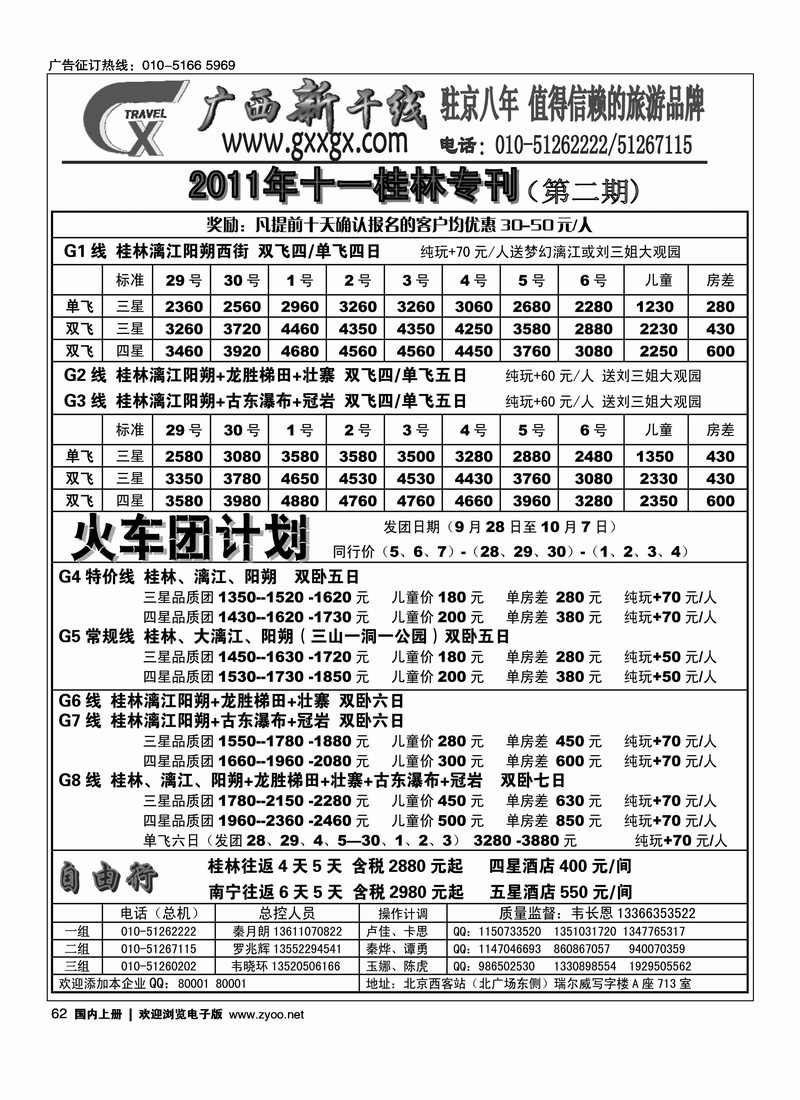 广告征订热线：010-5166 5969
TRAVEL
CX
广西新干线 驻京八年 值得信赖的旅游品牌
www.gxxgx.com 电话：010-51262222/51267115
2011年十一桂林专刊（第二期）
奖励：凡提前十天确认报名的客户均优惠 30-50 元/人
G1 线 桂林漓江阳朔西街 双飞四/单飞四日 纯玩+70 元/人送梦幻漓江或刘三姐大观园
标准 29 号 30 号 1 号 2 号 3 号 4 号 5 号 6 号 儿童 房差
单飞 三星 2360 2560 2960 3260 3260 3060 2680 2280 1230 280
双飞 三星 3260 3720 4460 4350 4350 4250 3580 2880 2230 430
双飞 四星 3460 3920 4680 4560 4560 4450 3760 3080 2250 600
G2 线 桂林漓江阳朔+龙胜梯田+壮寨 双飞四/单飞五日 纯玩+60 元/人 送刘三姐大观园
G3 线 桂林漓江阳朔+古东瀑布+冠岩 双飞四/单飞五日 纯玩+60 元/人 送刘三姐大观园
标准 29 号 30 号 1 号 2 号 3 号 4 号 5 号 6 号 儿童 房差
单飞 三星 2580 3080 3580 3580 3500 3280 2880 2480 1350 430
双飞 三星 3350 3780 4650 4530 4530 4430 3760 3080 2330 430
双飞 四星 3580 3980 4880 4760 4760 4660 3960 3280 2350 600
火车团计划 发团日期（9 月 28 日至 10 月 7 日）
同行价（5、6、7）-（28、29、30）-（1、2、3、4）
G4 特价线 桂林、漓江、阳朔 双卧五日
三星品质团 1350--1520 -1620 元 儿童价 180 元 单房差 280 元 纯玩+70 元/人
四星品质团 1430--1620 -1730 元 儿童价 200 元 单房差 380 元 纯玩+70 元/人
G5 常规线 桂林、大漓江、阳朔（三山一洞一公园）双卧五日
三星品质团 1450--1630 -1720 元 儿童价 180 元 单房差 280 元 纯玩+50 元/人
四星品质团 1530--1730 -1850 元 儿童价 200 元 单房差 380 元 纯玩+50 元/人
G6 线 桂林漓江阳朔+龙胜梯田+壮寨 双卧六日
G7 线 桂林漓江阳朔+古东瀑布+冠岩 双卧六日
三星品质团 1550--1780 -1880 元 儿童价 280 元 单房差 450 元 纯玩+70 元/人
四星品质团 1660--1960 -2080 元 儿童价 300 元 单房差 600 元 纯玩+70 元/人
G8 线 桂林、漓江、阳朔+龙胜梯田+壮寨+古东瀑布+冠岩 双卧七日
三星品质团 1780--2150 -2280 元 儿童价 450 元 单房差 630 元 纯玩+70 元/人
四星品质团 1960--2360 -2460 元 儿童价 500 元 单房差 850 元 纯玩+70 元/人
单飞六日（发团 28、29、4、5—30、1、2、3） 3280 -3880 元 纯玩+70 元/人
自由行 桂林往返 4 天 5 天 含税 2880 元起 四星酒店 400 元/间
南宁往返 6 天 5 天 含税 2980 元起 五星酒店 550 元/间
电话（总机） 总控人员 操作计调 质量监督：韦长恩 13366353522
一组 010-51262222 秦月朗 13611070822 卢佳、卡思 QQ：1150733520 1351031720 1347765317
二组 010-51267115 罗兆辉 13552294541 秦烨、谭勇 QQ：1147046693 860867057 940070359
三组 010-51260202 韦晓环 13520506166 玉娜、陈虎 QQ：986502530 1330898554 1929505562
欢迎添加本企业 QQ：80001 80001 地址：北京西客站（北广场东侧）瑞尔威写字楼 A 座 713 室
62 国内上册 | 欢迎浏览电子版 www.zyoo.net